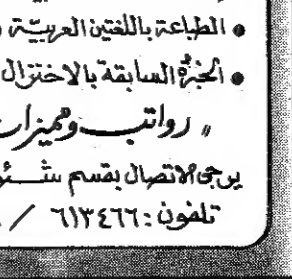 • الطباعة باللغتين العربية
• الخبرة السابقة بالاختزال
" رواتب ومميزات
يرجى الاتصال بقسم
تلفون : ٦١٣٤٦٦ /